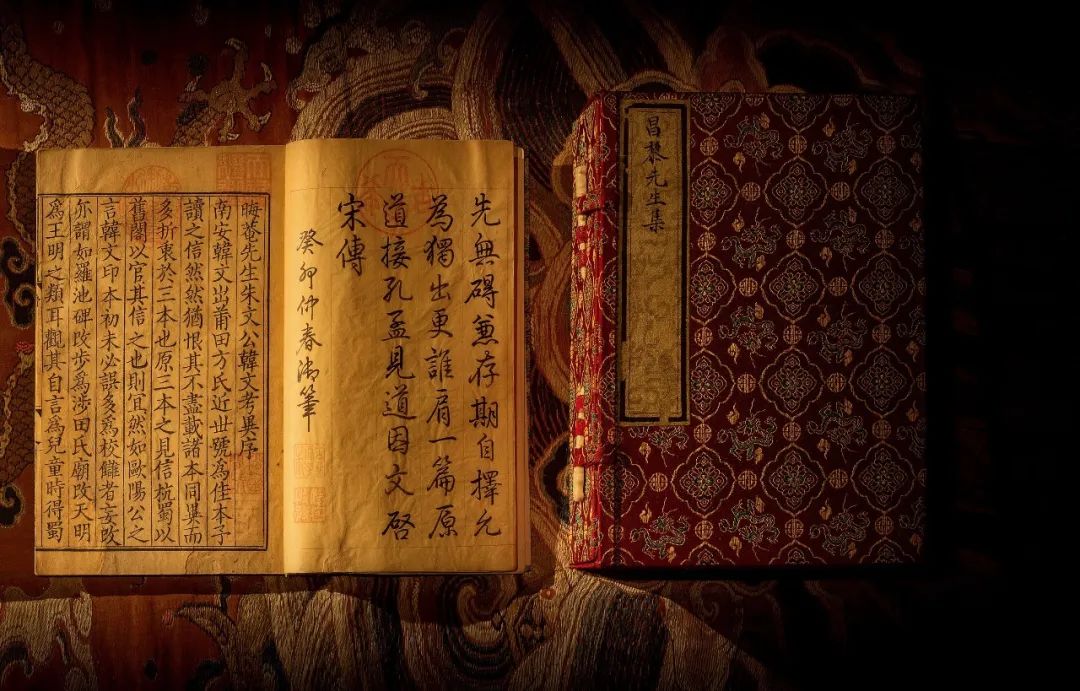 昌黎先生集
先無碍兼存期自擇允
為獨出更誰肩一篇原
道接孔孟見道因文啓
宋傳
癸卯仲春御筆
晦菴先生朱文公韓文考異序
南安韓文出莆田方氏近世號為佳本予
讀之信然然猶恨其不盡載諸本同異而
多折衷於三本也原三本之見信杭蜀以
舊閣以官其信之也則宜然如歐陽公之
言韓文印本初未必誤多爲校讎者妄改
亦謂如羅池碑改步爲涉田氏廟改天明
爲王明之類耳觀其自言爲兒童時得蜀